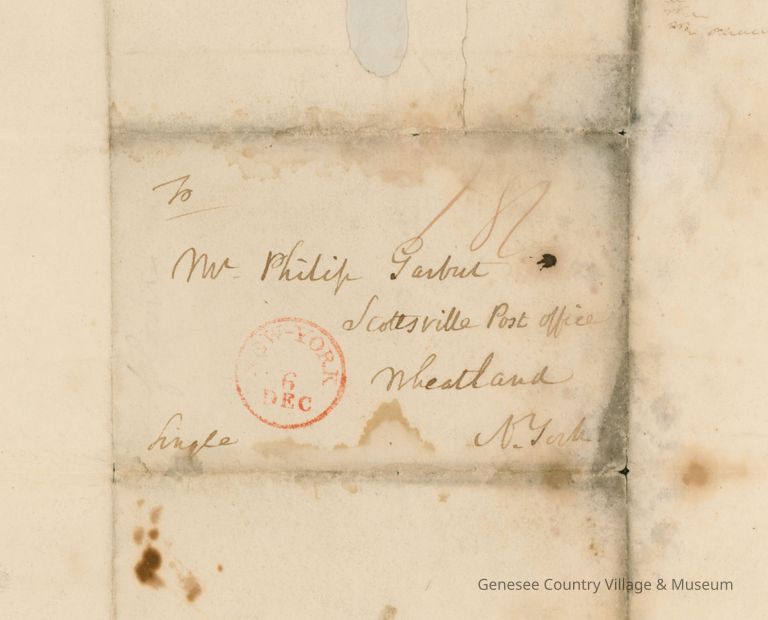 To
Mr. Philip Garbut
Scottsville Post office
Wheatland
N. York
Single
NEW-YORK
6
DEC
Genesee Country Village & Museum